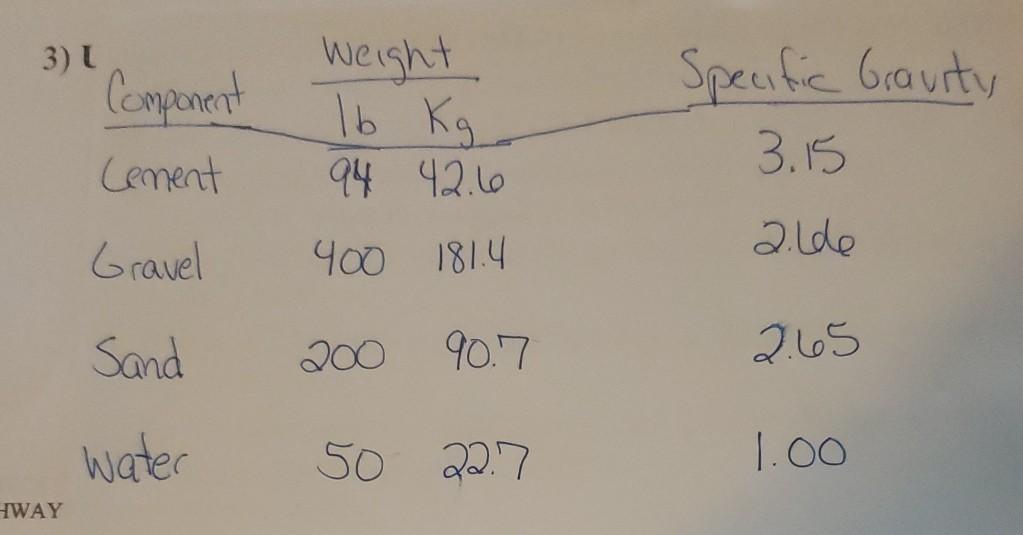 3) L
Weight
Component lb Kg Specific Gravity
Cement 94 42.6 3.15
Gravel 400 181.4 2.66
Sand 200 90.7 2.65
Water 50 22.7 1.00
HWAY